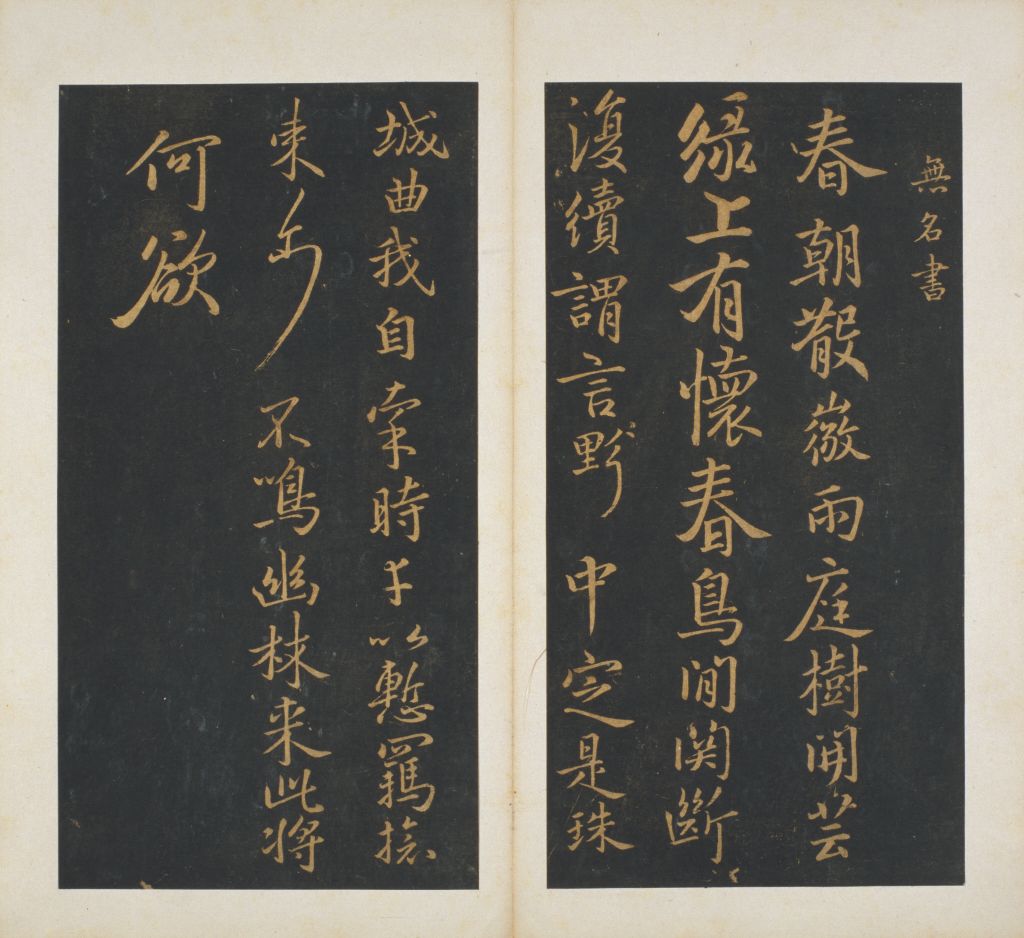 無名書
春朝散微雨庭樹開芸
綠上有懷春鳥間關斷
復續謂言野中定是珠
城曲我自牽時以慙羈檢
束尓不鳴幽林来此将
何欲